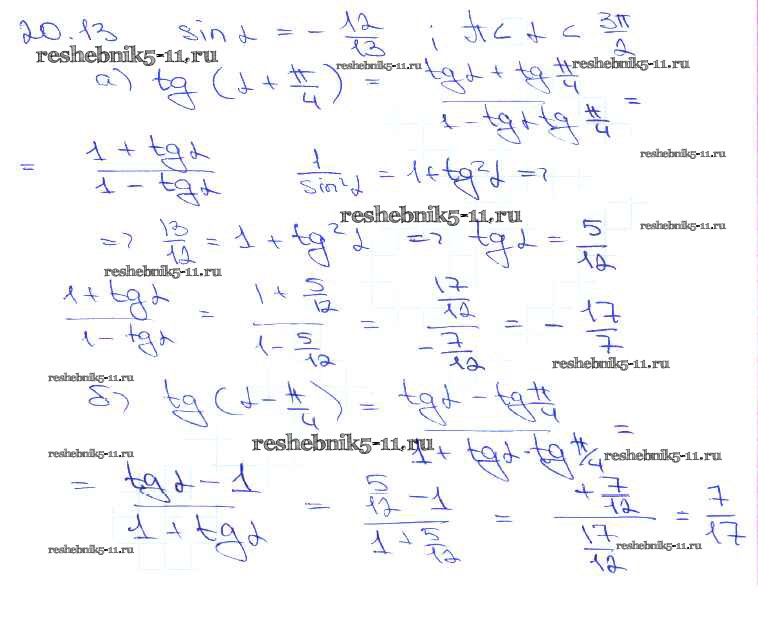 20.13 sin α = - 12/13 ; π < α < 3π/2
reshebnik5-11.ru
reshebnik5-11.ru
reshebnik5-11.ru
а) tg (α + π/4) = (tg α + tg π/4)/(1 - tg α tg π/4) =
reshebnik5-11.ru
= (1 + tg α)/(1 - tg α) 1/sin²α = 1 + tg²α =>
reshebnik5-11.ru
reshebnik5-11.ru
=> 13/12 = 1 + tg²α => tg α = 5/12
reshebnik5-11.ru
(1 + tg α)/(1 - tg α) = (1 + 5/12)/(1 - 5/12) = (17/12)/(- 7/12) = - 17/7
reshebnik5-11.ru
reshebnik5-11.ru
б) tg (α - π/4) = (tg α - tg π/4)/(1 + tg α · tg π/4) =
reshebnik5-11.ru
reshebnik5-11.ru
reshebnik5-11.ru
= (tg α - 1)/(1 + tg α) = (5/12 - 1)/(1 + 5/12) = (+ 7/12)/(17/12) = 7/17
reshebnik5-11.ru
reshebnik5-11.ru